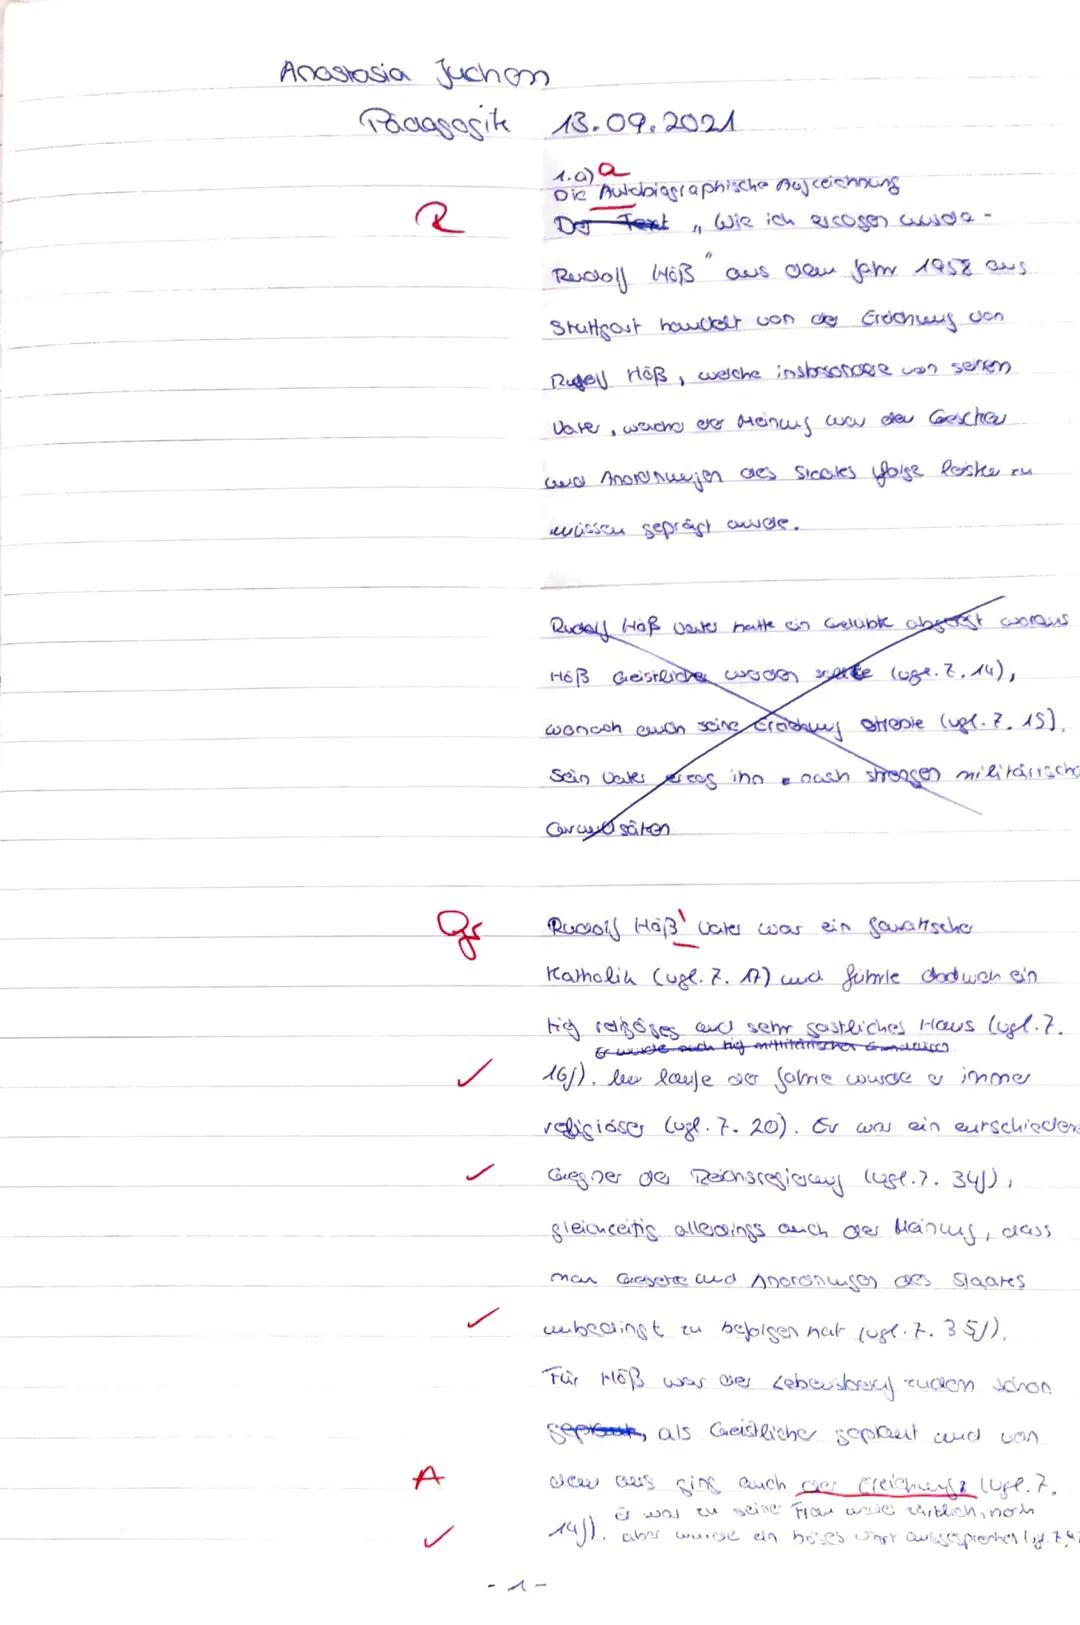 Anastasia Juchom
Pädagogik 13.09.2021
1.a) a
Die Autobiographische Aufzeichnung
R Der Text „Wie ich erzogen wurde -
Rudolf Höß" aus dem Jahr 1958 aus
Stuttgart handelt von der Erziehung von
Rudolf Höß, welche insbesondere von seinem
Vater, welcher der Meinung war den Gesetzen
und Anordnungen des Staates folge leisten zu
müssen geprägt wurde.
Rudolf Höß Vater hatte ein Gelübte abgelegt woraus
Höß Geistlicher werden sollte (vgl. Z. 14),
wonach auch seine Erziehung strebte (vgl. Z. 15).
Sein Vater erzog ihn nach strengen militärische
Grundsätzen
Gr Rudolf Höß' Vater war ein fanatischer
Katholik (vgl. Z. 17) und führte dadurch ein
tief religiöses und sehr gastliches Haus (vgl. Z.
Er wurde auch tief militärischen Grundsätzen
16f). Im laufe der Jahre wurde er immer
religiöser (vgl. Z. 20). Er war ein entschieden
Gegner der Reichsregierung (vgl. Z. 34f),
gleichzeitig allerdings auch der Meinung, dass
man Gesetze und Anordnungen des Staates
unbedingt zu befolgen hat (vgl. Z. 35f).
Für Höß war der Lebensberuf zudem schon
geplant, als Geistlicher geplant und von
A dem aus ging auch der Erziehung (vgl. Z.
Er war zu seiner Frau weder zärtlich, noch
14f). aber wurde ein böses Wort ausgesprochen (vgl. Z.
- 1 -